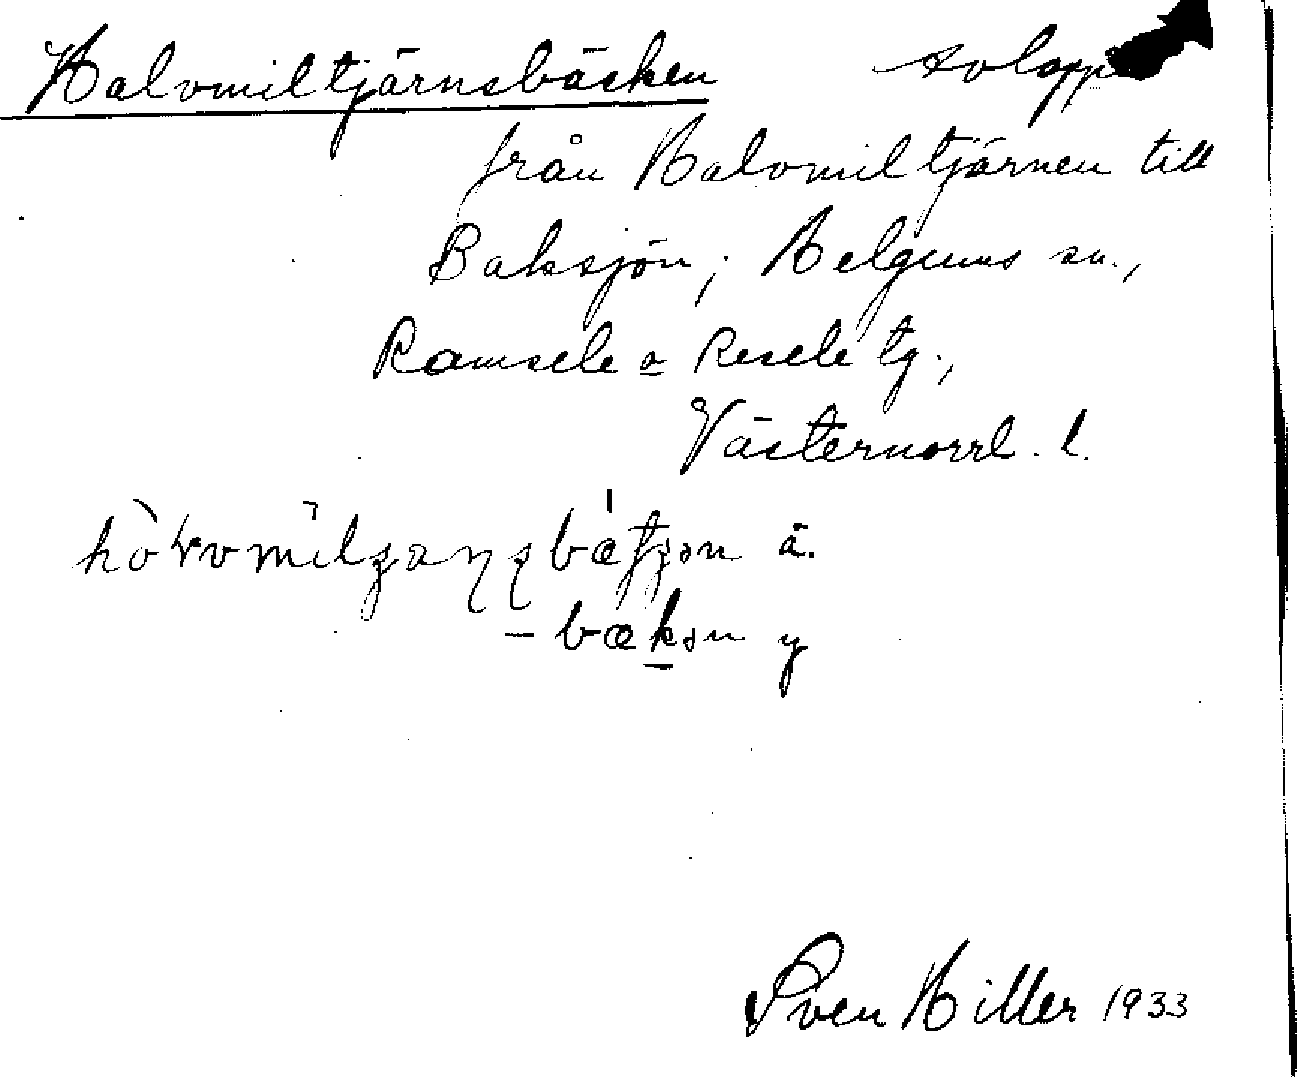 Halvmiltjärnsbäcken avlopp
från Halvmiltjärnen till
Baksjön; Helgums sn.,
Ramsele o Resele tg.,
Västernorrl. l.
ä.
y
Sven Hiller 1933